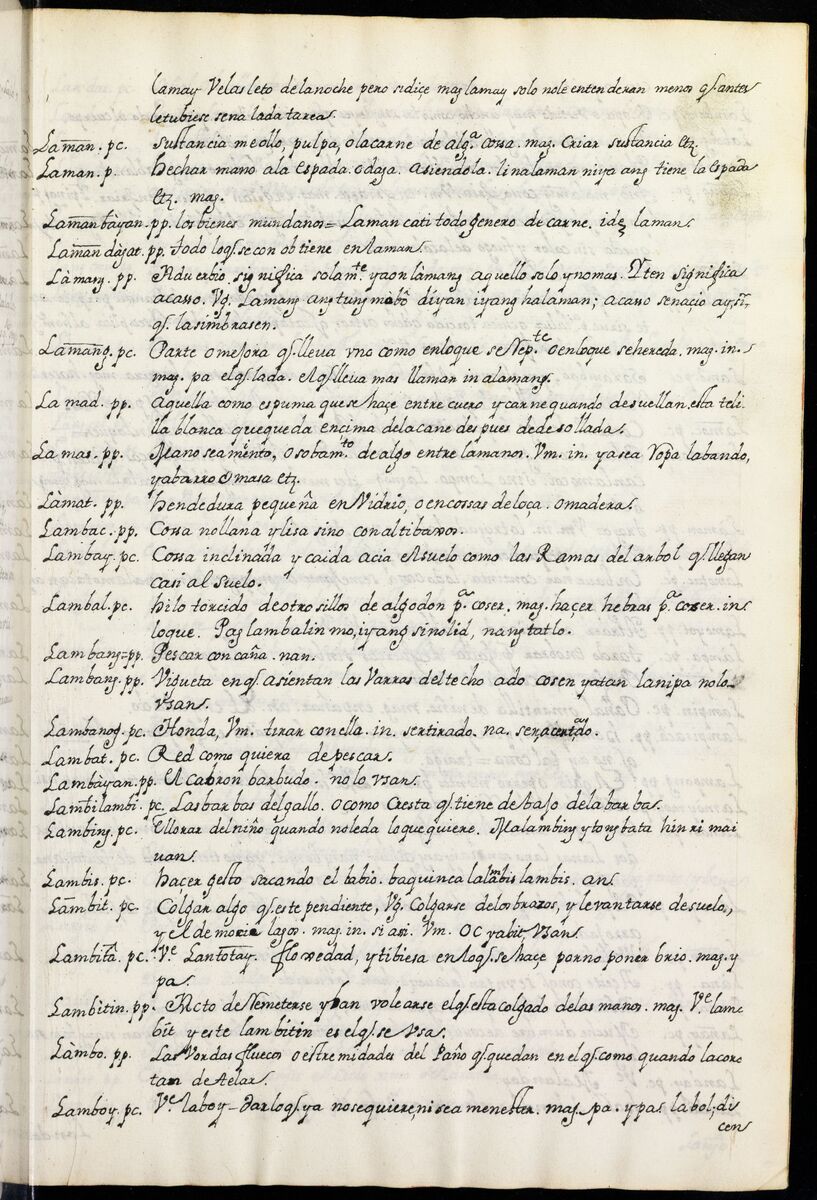 lamay Velas leto de la noche pero si diçe mag lamay solo no le entenderan menos q̃ antes
letubiese sena lada tarea.
Laman. pc. sustancia meollo, pulpa, o la carne de algª. cossa. mag. criar sustancia etz.
Laman. p. hechar mano ala espada. o daga. asiendola. linalaman niya ang tiene la espada
etz. mag.
Laman bàyan. pp. los bienes mundanos = Laman cati todo genero de carne. idẽ laman.
Laman dàgat. pp. todo loq̃ se con ob tiene en laman.
Làmang. pp. Aduerbio, significa solamte. ya on lamang aquello solo y nomas. Yten significa
acasso. Vg. Lamang ang tung mòbô diyan iyang halaman; acasso senaçio ay, si,
q̃. la simbrasen.
Lamang. pc. Parte o mejora q̃. lleua vno como enloque se Repte. o enloque se hereda. mag. in.
mag. pa elq̃. lada. elq̃. lleua mas llaman in alamang.
La mad. pp. aquella como espuma que se haçe entre cuero y carne quando desuellan. esta teli.
lla blanca que queda encima dela carne des pues de de sollada.
La mas. pp. Mano seamento, o sobamto. de algo entre lamanos. Vm. in. ya sea Ropa labando,
ya barro o masa etz.
Làmat. pp. hendedura pequeña en Vidrio, o en cossas de loça. o madera.
Lambac. pp. Cossa no llana y lisa sino con altibaxos.
Lambay. pc. Cossa inclinada y caida açia el suelo como las Ramas del arbol q̃. llegan
casi al suelo.
Lambal. pc. hilo torcido de otrosillos de algodon pª. coser. mag. haçer hebras pª. coser. in
loque. Pag lambalin mo, iyang sinolid, nang tatlo.
Lambang = pp. Pescar con caña. nan.
Lambang. pp. Vigueta en q̃. asientan las Varras del techo ado cosen y atan la nipa nolo
vsan.
Lambanog. pc. Honda, Vm. tirar con ella. in. ser tirado. na. ser, acertado.
Lambat. pc. Red como quiera de pescar.
Lambàyan. pp. El cabron barbudo. no lo vsan.
Lambilambi. pc. Las barbas del gallo. o como cresta q̃. tiene de bajo dela barba.
Lambing. pc. llorar del niño quando no leda lo que quiere. Malambing y tong bata hin ri mai
uan.
Lambis. pc. hacer gesto sacando el labio. baquinca lalambis lambis. an.
Lambit. pc. Colgar algo q̃. este pendiente, Vg. colgarse delos braxos, y leuantarse de suelo,
y el de lagos. mag. in. si ari. Vm. oc yabit vsan.
Lambitâ. pc. Ve. Lantotay. flo xedad, y tibiesa en loq̃. se haçe por no poner brio. mag. y
pa.
Lambitin. pp. Acto de Remeterse y ban volearse el q̃ esta colgado de las manos. mag. Ve. lam
bit y este lambitin es el q̃. se Vsa.
Làmbo. pp. Las Vordas fluecos o estremidades del paño q̃. quedan en el q̃. como quando la cor
tan de telar.
Lamboy. pc. Ve. laboy - dar loq̃. ya no se quiere, ni sea menester. mag. pa. y pag labol; di
cen